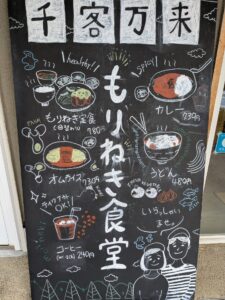 千客万来
healthy!
spicy!
もりねぎ定食
980円
カレー
830円
もりねぎ食堂
オムライス
730円
うどん
480円
テイクアウト
OK!
いらっしゃい
ませ。
コーヒー
240円